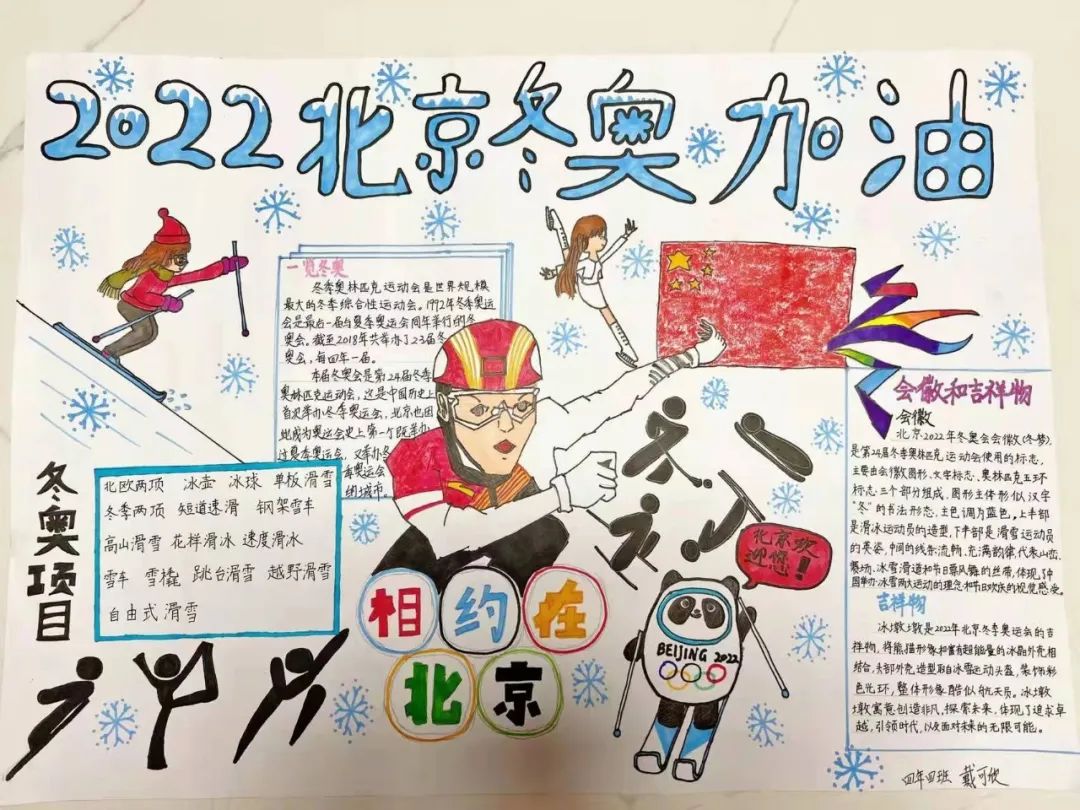 2022北京冬奥加油
一览冬奥
冬季奥林匹克运动会是世界规模
最大的冬季综合性运动会。1992年冬季奥运
会是最后一届与夏季奥运会同年举行的冬
奥会，截至2018年共举办了23届冬
奥会，每四年一届。
本届冬奥会是第24届冬季
奥林匹克运动会，这是中国历史上
首次举办冬季奥运会，北京也因
此成为奥运会史上第一个既举办
过夏季奥运会，又举办冬
季奥运会
的城市。
冬奥项目
北欧两项 冰壶 冰球 单板滑雪
冬季两项 短道速滑 钢架雪车
高山滑雪 花样滑冰 速度滑冰
雪车 雪橇 跳台滑雪 越野滑雪
自由式滑雪
相约在
北京
北京欢
迎您！
BEIJING 2022
会徽和吉祥物
会徽
北京2022年冬奥会会徽《冬梦》，
是第24届冬季奥林匹克运动会使用的标志，
主要由会徽图形、文字标志、奥林匹克五环
标志三个部分组成，图形主体形似汉字
“冬”的书法形态，主色调为蓝色。上半部
是滑冰运动员的造型，下半部是滑雪运动员
的英姿，中间的线条流畅，充满韵律，代表山峦、
赛场、冰雪滑道和节日飘舞的丝带，体现了中
国举办冰雪两大运动的理念和节日欢庆的视觉感受。
吉祥物
冰墩墩是2022年北京冬季奥运会的吉
祥物，将熊猫形象和富有超能量的冰晶外壳相
结合，头部外壳造型取自冰雪运动头盔，装饰彩
色光环，整体形象酷似航天员。冰墩
墩寓意创造非凡，探索未来，体现了追求卓
越，引领时代，以及面对未来的无限可能。
四年四班 戴可欣